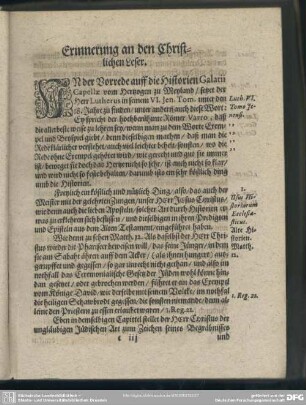 Erinnerung an den Christ-
lichen Leser.
IN der Vorrede auff die Historien Galatii
Capellæ vom Hertzogen zu Meyland / setzet der
HErr Lutherus in seinem VI. Jen. Tom. unter dem
Jahre zu finden / unter andern auch diese Wort:
Es spricht der hochberühmte Römer Varro / daß
die allerbeste weise zu lehren sey / wenn man zu dem Worte Exem-
pel und Beyspiel giebt / denn dieselbigen machen / daß man die
Rede klärlicher verstehet / auch viel leichter behelt / sonsten / wo die
Rede ohne Exempel gehöret wird / wie gerecht und gut sie immer
ist / beweget sie doch das Hertz nicht so sehr / ist auch nicht so klar /
und wird nicht so feste behalten / darumb ists ein sehr köstlich ding
umb die Historien.
Freylich ein köstlich und nützlich Ding / also / das auch der
Meister mit der gelehrten Zungen / unser HErr Jesus Christus /
wie denn auch die lieben Apostel / solcher Art durch Historien et-
was zu erklären sich beflissen / und dieselbigen in ihren Predigten
und Episteln aus dem Alten Testament / eingeführet haben.
Wie denn zu sehen Matth. 12. Als daselbst der HErr Chri-
stus wieder die Phariseer beweisen will / das seine Jünger / indem
sie am Sabath ähren auff dem Acker / (als ihnen hungert) auß-
geraufft und gegessen / so gar unrecht nicht gethan / und also im
nothfall das Ceremonialische Gesetz der Jüden wohl könne hind-
an gesetzet / oder gebrochen werden / führet er ein das Exempel
vom Könige David / wie derselbe mit seinem Volcke / im nothfall
die heiligen Schawbrodt gegessen / die sonsten niemande / denn al-
leine den Priestern zu essen erläubet waren / 1. Reg. 21.
Eben in demselbigen Capitel stellet der HErr Christus der
ungläubigen Jüdischen Art zum Zeichen seines Begräbnisses
und
Luth. VI.
Tomo Je-
nensi.
Historiarum
Ecclesia-
sticar.
Alte Hi-
storien.
Matth.
12.
1. Reg. 21.